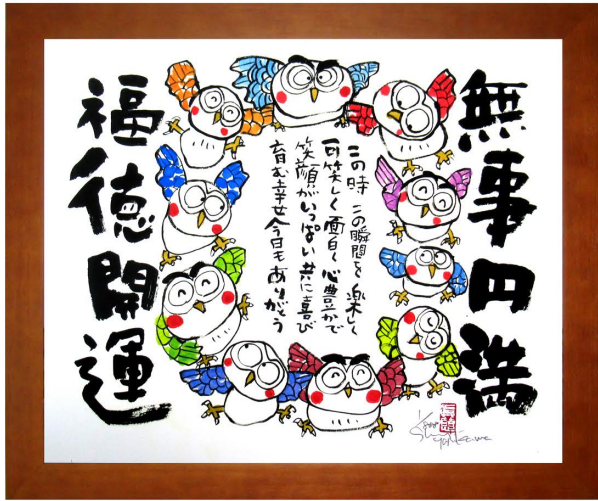 無事円満
この時この瞬間を楽しく
可笑しく面白く心豊かで
笑顔がいっぱい共に喜び
育む幸せ今日もありがとう
福徳開運